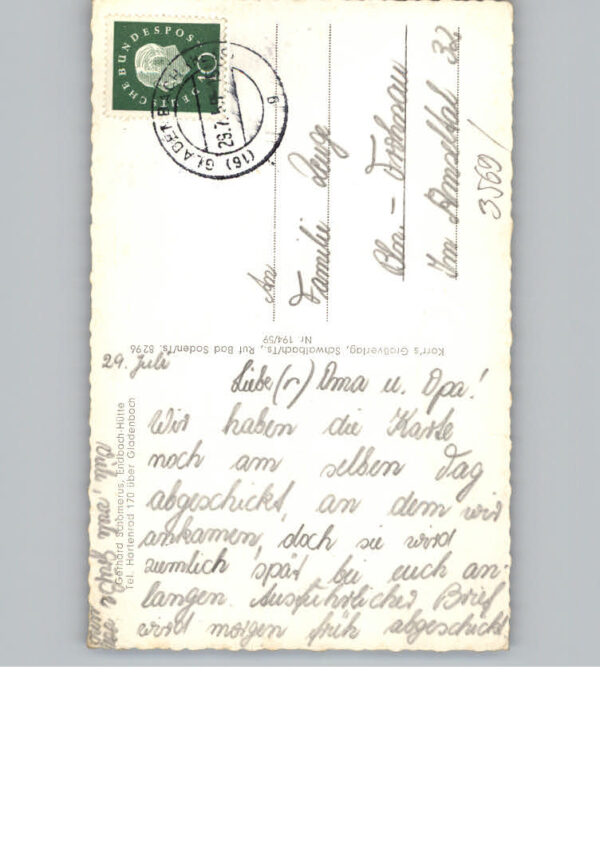 DEUTSCHE BUNDESPOST
10
(16) GLADENBACH
29.7.
g
An
Familie Lange
Bln. - Frohnau
Im Amseltal 32
3569/
Korr's Großverlag, Schwalbach/Ts., Ruf Bad Soden/Ts. 82 96
Nr. 194/59
29. Juli
Liebe(r) Oma u. Opa!
Wir haben die Karte
noch am selben Tag
abgeschickt, an dem wir
ankamen, doch sie wird
ziemlich spät bei euch an-
langen. Ausführlicher Brief
wird morgen früh abgeschickt
Viele, viele Grüße
Gerhard Schömerus, Endbach-Hütte
Tel. Hartenrod 170 über Gladenbach